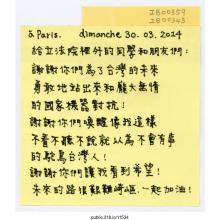 IB00359
IB00343
à Paris. dimanche 30. 03. 2024
給立法院裡外的同學和朋友們：
謝謝你們為了台灣的未來
身軀地站出來和龐大無情
的國家機器對抗！
謝謝你們喚醒像我這樣
不看不聽不說就以為不會有事
的鴕鳥台灣人！
謝謝你們讓我看到希望！
未來的路很艱難崎嶇．一起加油！
public.318.io/11534